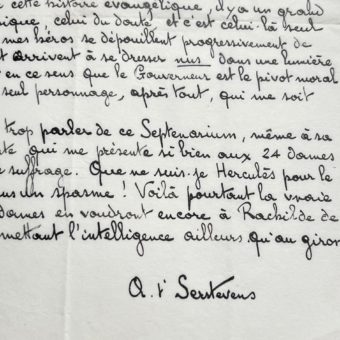 cette histoire évangélique, il y a un grand
ique, celui du doute, et c'est celui-là seul
mes héros se dépouillent progressivement de
t arrivent à se dresser nus dans une lumière
en ce sens que le Gouverneur est le pivot moral
seul personnage, après tout, qui me soit
trop parler de ce Septenarium, même à sa
te qui me présente si bien aux 24 dames
e suffrage. Que ne suis-je Herculès pour le
us un spasme ! Voilà pourtant la vraie
dames en voudront encore à Rachilde de
mettant l'intelligence ailleurs qu'au giron
A. t' Serstevens